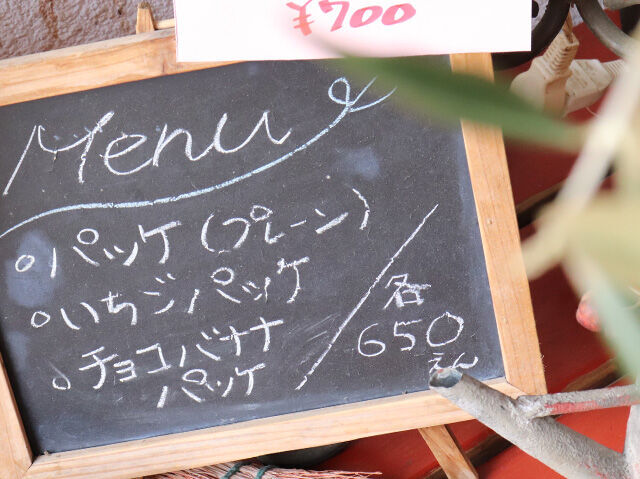 ¥700
Menu
○パッケ(プレーン)
○いちごパッケ
○チョコバナナ
パッケ
各
650
えん